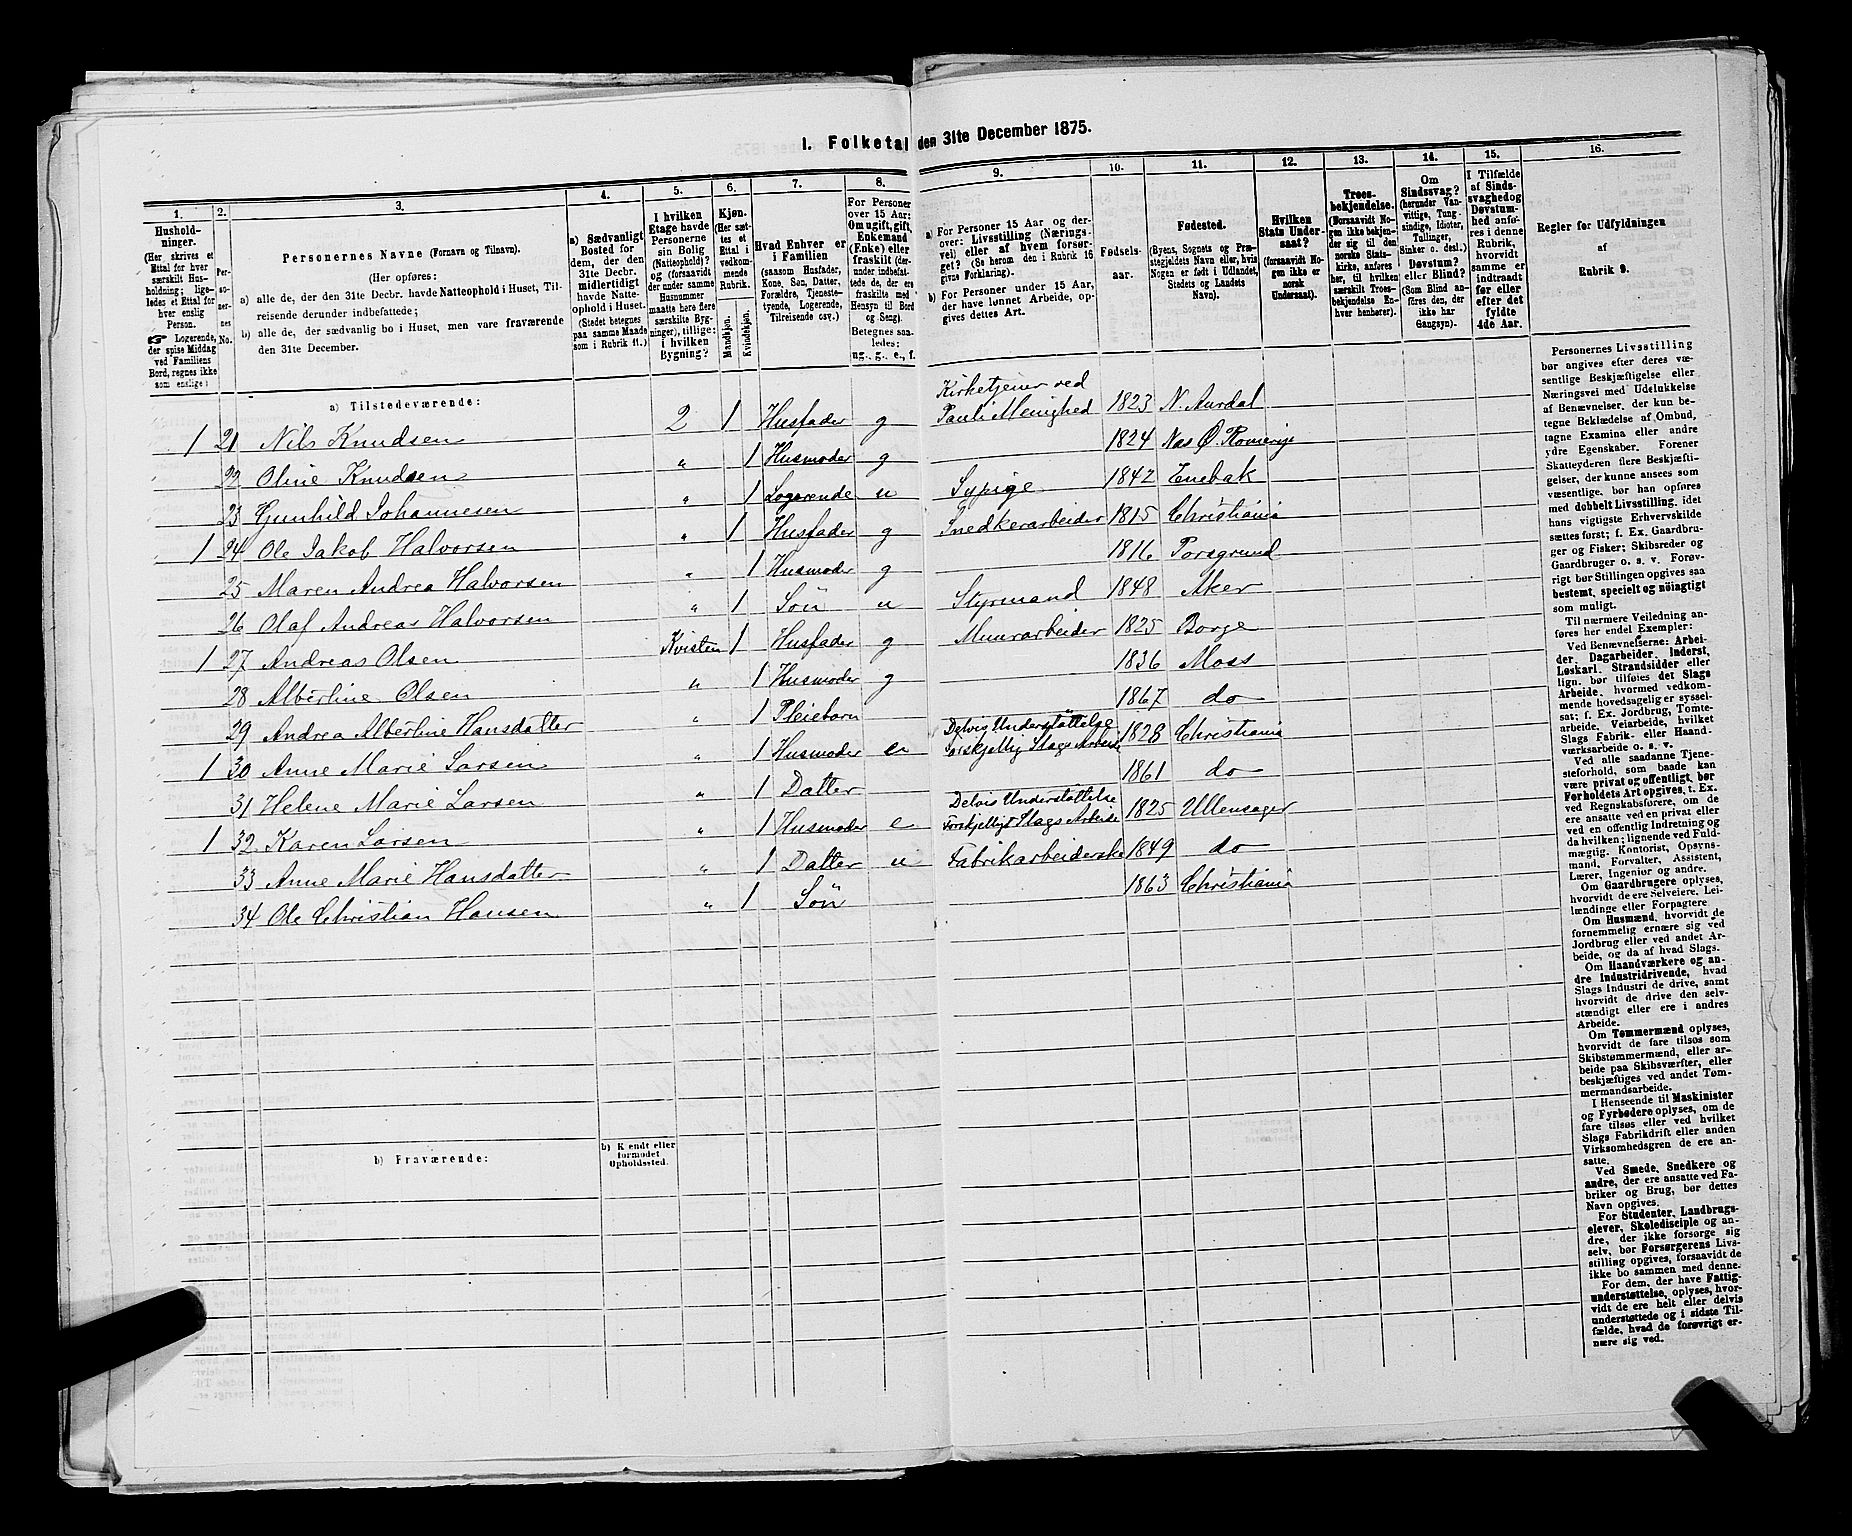 1. Folketal den 31te December 1875.
1. 2. 3. 4. 5. 6. 7. 8. 9. 10. 11. 12. 13. 14. 15. 16.
Hushold-
ninger.
(Her skrives et
Ettal for hver
særskilt Hus-
holdning; lige-
ledes et Ettal for
hver enslig
Person.
☞ Logerende,
der spise Middag
ved Familiens
Bord, regnes ikke
som enslige.)
Per-
so-
ner-
nes
No.
Personernes Navne (Fornavn og Tilnavn).
(Her opføres:
a) alle de, der den 31te Decbr. havde Natteophold i Huset, Til-
reisende derunder indbefattede;
b) alle de, der sædvanlig bo i Huset, men vare fraværende
den 31te December.
a) Sædvanligt
Bosted for
dem, der den
31te Decbr.
midlertidigt
havde Natte-
ophold i Huset.
(Stedet betegnes
paa samme Maade
som i Rubrik 11.)
I hvilken
Etage havde
Personerne
sin Bolig
(Natteophold)?
og (forsaavidt
der under samme
Husnummer
maatte høre flere
særskilte Byg-
ninger), tillige:
i hvilken
Bygning?
Kjøn.
(Her sæt-
tes et
Ettal i
vedkom-
mende
Rubrik.
Mandkjøn.
Kvindekjøn.
Hvad Enhver er
i Familien
(saasom Husfader,
Kone, Søn, Datter,
Forældre, Tjeneste-
tyende, Logerende,
Tilreisende osv.)
For Personer
over 15 Aar:
Om ugift, gift,
Enkemand
(Enke) eller
fraskilt (der-
under indbefat-
tede de, der ere
fraskilte med
Hensyn til Bord
og Seng).
Betegnes saa-
ledes:
ug., g., e., f.
a) For Personer 15 Aar og der-
over: Livsstilling (Nærings-
vei) eller af hvem forsør-
get? (Se herom den i Rubrik 16
givne Forklaring).
b) For Personer under 15 Aar,
der have lønnet Arbeide, op-
gives dettes Art.
Fødsels-
aar.
Fødested.
(Byens, Sognets og Præ-
stegjeldets Navn eller, hvis
Nogen er født i Udlandet,
Stedets og Landets
Navn).
Hvilken
Stats Under-
saat?
(forsaavidt No-
gen ikke er
norsk
Undersaat).
Troes-
bekjendelse.
(Forsaavidt No-
gen ikke bekjen-
der sig til den
norske Stats-
kirke, anføres
her, til hvilken
særskilt Troes-
bekjendelse En-
hver henhører).
Om
Sindssvag?
(herunder Van-
vittige, Tung-
sindige, Idioter,
Tullinger,
Sinker o. desl.)
Døvstum?
eller Blind?
(Som Blind an-
føres den, der
ikke har
Gangsyn).
I Tilfælde
af Sinds-
svaghed og
Døvstum-
hed anfø-
res i denne
Rubrik,
hvorvidt
samme er
indtraadt
før eller
efter det
fyldte
4de Aar.
Regler for Udfyldningen
af
Rubrik 9.
a) Tilstedeværende:
1 21 Nils Knudsen 2 1 Husfader g Kirketjener ved Pauli Menighed 1823 N. Aurdal
22 Oline Knudsen " 1 Husmoder g 1824 Næs Ø. Romerige
23 Gunhild Johannesen " 1 Logerende u Sypige 1842 Enebak
1 24 Ole Jakob Halvorsen " 1 Husfader g Snedkerarbeider 1815 Christiania
25 Maren Andrea Halvorsen " 1 Husmoder g 1816 Porsgrund
26 Olaf Andreas Halvorsen " 1 Søn u Styrmand 1848 Aker
1 27 Andreas Olsen Kvisten 1 Husfader g Murarbeider 1825 Borge
28 Albertine Olsen " 1 Husmoder g 1836 Moss
29 Andrea Albertine Hansdatter " 1 Pleiebarn 1867 do
1 30 Anne Marie Larsen " 1 Husmoder e Delvis Understøttelse Forskjellig Slags Arbeide 1828 Christiania
31 Helene Marie Larsen " 1 Datter 1861 do
1 32 Karen Larsen " 1 Husmoder e Delvis Understøttelse Forskjelligt Slags Arbeide 1825 Ullensager
33 Anne Marie Hansdatter " 1 Datter u Fabrikarbeiderske 1849 do
34 Ole Christian Hansen " 1 Søn 1863 Christiania
b) Fraværende:
b) Kjendt eller
formodet
Opholdssted.
Personernes Livsstilling
bør angives efter deres væ-
sentlige Beskjæftigelse eller
Næringsvei med Udelukkelse
af Benævnelser, der kun be-
tegne Beklædelse af Ombud,
tagne Examina eller andre
ydre Egenskaber. Forener
Skatteyderen flere Beskjæfti-
gelser, der kunne ansees som
væsentlige, bør han opføres
med dobbelt Livsstilling, idet
hans vigtigste Erhvervskilde
sættes først; f. Ex. Gaardbru-
ger og Fisker; Skibsreder og
Gaardbruger o. s. v. Forøv-
rigt bør Stillingen opgives saa
bestemt, specielt og nøiagtigt
som muligt.
Til nærmere Veiledning an-
føres her endel Exempler:
Ved Benævnelserne: Arbei-
der, Dagarbeider, Inderst,
Løskarl, Strandsidder eller
lign. bør tilføies det Slags
Arbeide, hvormed vedkom-
mende hovedsagelig er syssel-
sat; f. Ex. Jordbrug, Tomte-
arbeide, Veiarbeide, hvilket
Slags Fabrik- eller Haand-
værksarbeide o. s. v.
Ved alle saadanne Tjene-
steforhold, som baade kan
være privat og offentligt, bør
Forholdets Art opgives, t. Ex.
ved Regnskabsførere, om de
ere ansatte ved en privat eller
ved en offentlig Indretning og
da hvilken; lignende ved Fuld-
mægtig, Kontorist, Opsyns-
mand, Forvalter, Assistent,
Lærer, Ingeniør og andre.
Om Gaardbrugere oplyses,
hvorvidt de ere Selveiere, Lei-
lændinge eller Forpagtere.
Om Husmænd, hvorvidt de
fornemmelig ernære sig ved
Jordbrug eller ved andet Ar-
beide, og da af hvad Slags.
Om Haandværkere og an-
dre Industridrivende, hvad
Slags Industri de drive, samt
hvorvidt de drive den selv-
stændigt eller ere i andres
Arbeide.
Om Tømmermænd oplyses,
hvorvidt de fare tilsøs som
Skibstømmermænd, eller ar-
beide paa Skibsværfter, eller
beskjæftiges ved andet Tøm-
mermandsarbeide.
I Henseende til Maskinister
og Fyrbødere oplyses, om de
fare tilsøs eller ved hvilket
Slags Fabrikdrift eller anden
Virksomhedsgren de ere an-
satte.
Ved Smede, Snedkere og
andre, der ere ansatte ved Fa-
briker og Brug, bør dettes
Navn opgives.
For Studenter, Landbrugs-
elever, Skoledisciple og an-
dre, der ikke forsørge sig
selv, bør Forsørgerens Livs-
stilling opgives, forsaavidt de
ikke bo sammen med denne.
For dem, der have Fattig-
understøttelse, oplyses, hvor-
vidt de ere helt eller delvis
understøttede og i sidste Til-
fælde, hvad de forøvrigt er-
nære sig ved.